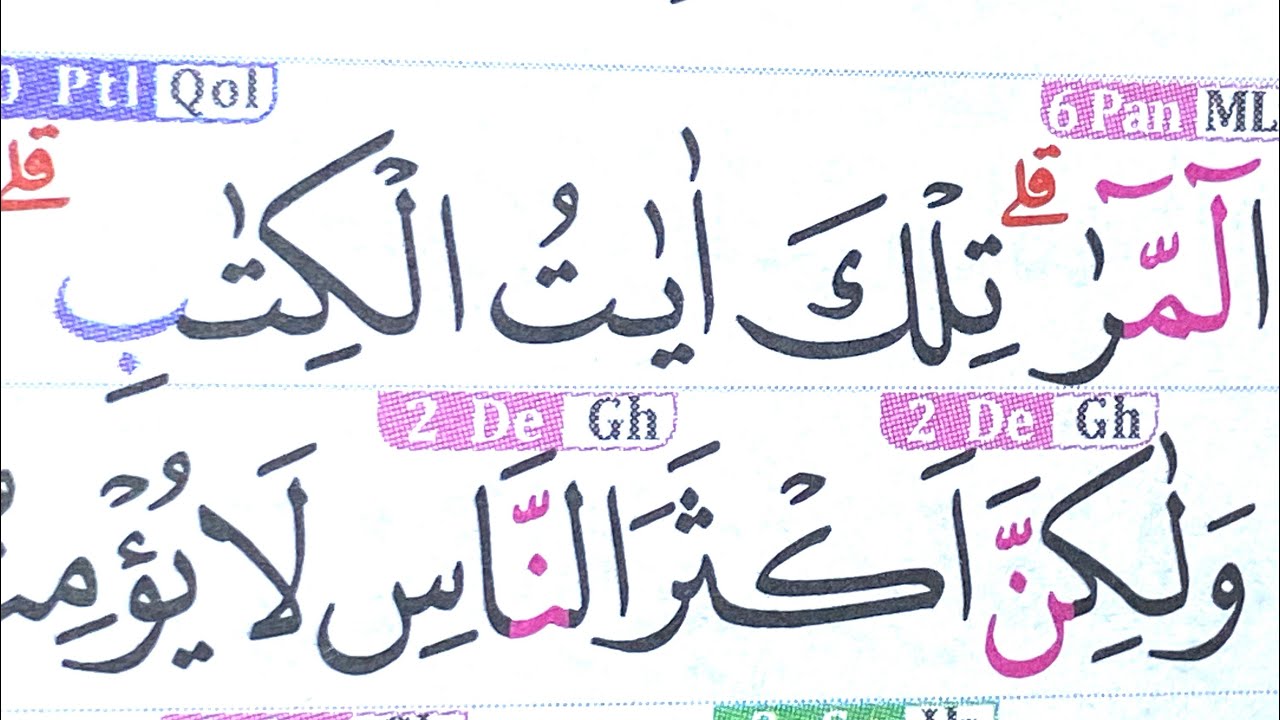 6 Pan ML Ptl Qol
الٓمّٓرٰ ۗ تِلْكَ اٰيٰتُ الْكِتٰبِ ۗ
2 De Gh 2 De Gh
وَلٰكِنَّ اَكْثَرَ النَّاسِ لَا يُؤْمِنُ